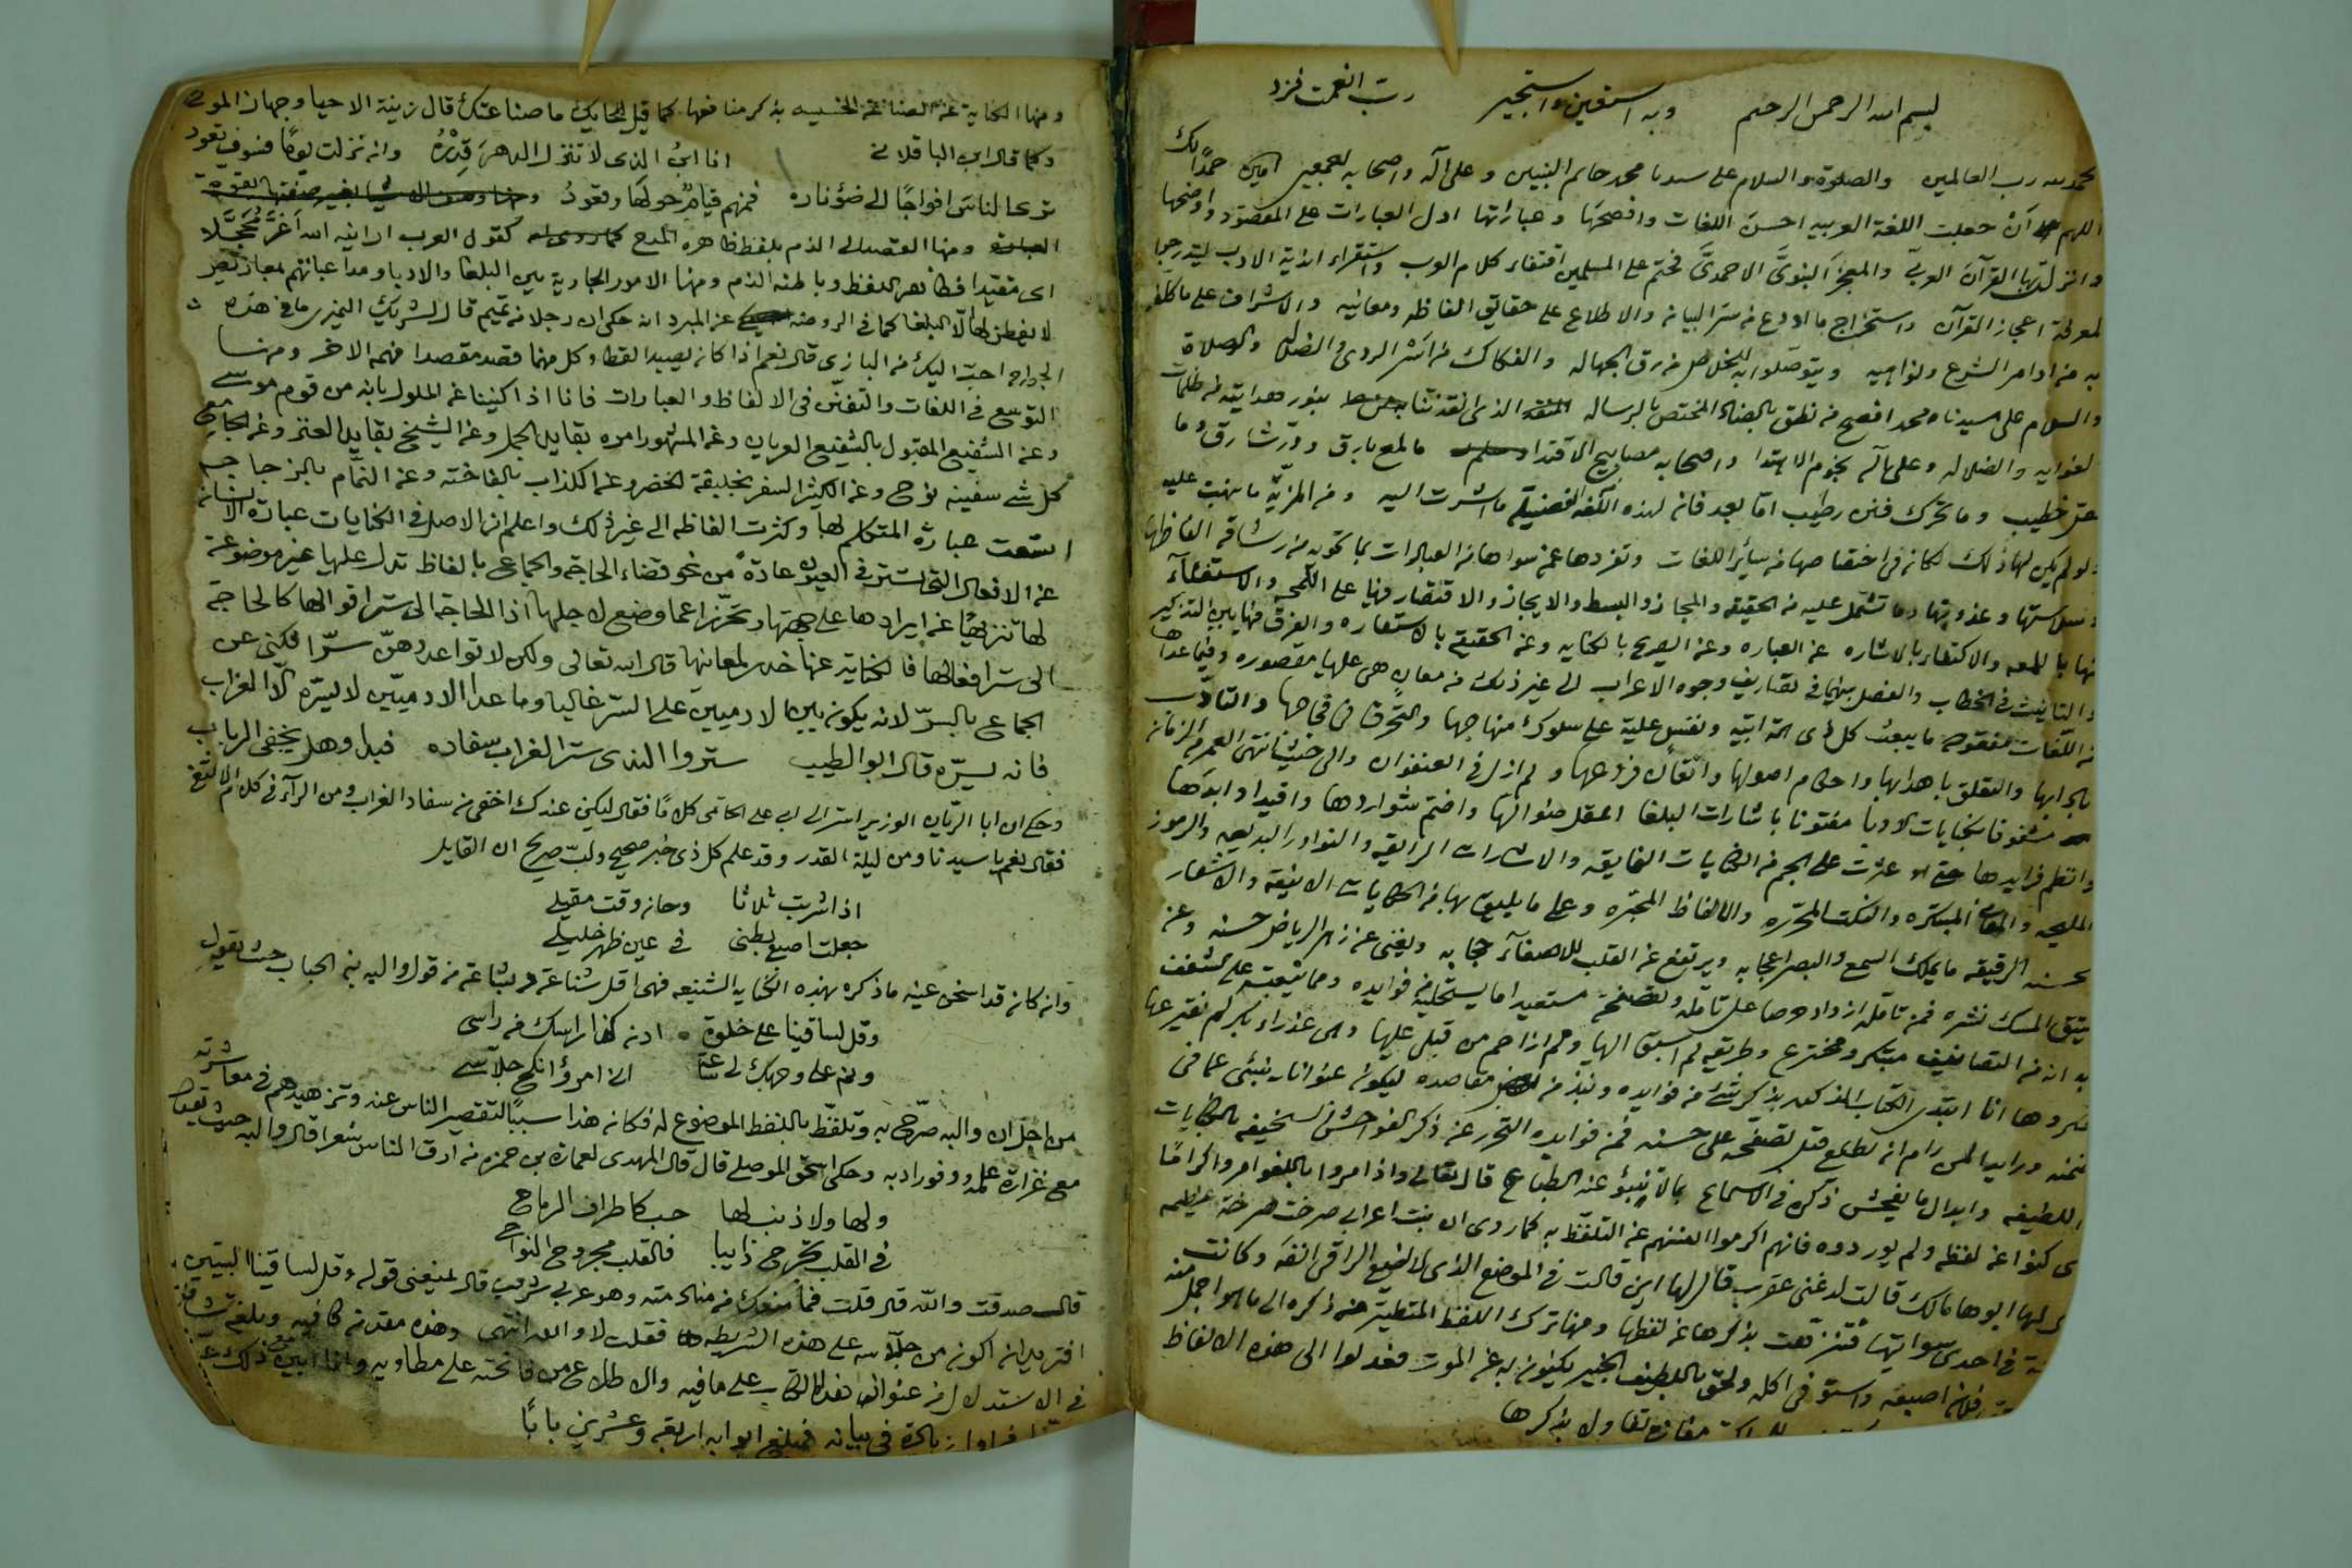 بسم الله الرحمن الرحيم وبه استعين واستجير رب انعمت فزد
الحمد لله رب العالمين والصلوة والسلام على سيدنا محمد خاتم النبيين وعلى آله واصحابه اجمعين امين حمدًا لك
اللهم على أن جعلت اللغة العربيه احسن اللغات وافصحها وعباراتها ادل العبارات على المقصود واوضحها
وانزلت بها القرآن العربى والمعجز النبوىَّ الاحمدىَّ فحتم على المسلمين اقتفاء كلام العرب واستقراء اندية الادب ليتدرجوا
لمعرفة اعجاز القرآن واستخراج ما اودع من سر البيان والاطلاع على حقايق الفاظه ومعانيه والاشراف على ما كلف
به من اوامر الشرع ونواهيه ويتوصلوا به للخلاص من رق الجهاله والفكاك من اسر الردى والضلال والصلاة
والسلام على سيدنا محمد افصح من نطق بالضاد المختص بالرساله الذى انقذنا بنور هدايته من ظلمات
الغوايه والضلاله وعلى آله نجوم الاهتدا واصحابه مصابيح الاقتدا ما لمع بارق وذر شارق وما
خطيب وما تحرك فنن رطيب اما بعد فان لهذه اللغه الفضيلة ما اشرت اليه ومن المزيّة ما نبهت عليه
ولو لم يكن لها ذلك لكان فى اختصاصها من سائر اللغات وتفردها عمن سواها من العبارات بما تحويه من رشاقة الفاظها
وسلاستها وعذوبتها وما تشتمل عليه من الحقيقه والمجاز والبسط والايجاز والاقتصار فيها على اللمحه والاستغناء
منها باللمعه والاكتفاء بالاشاره عن العباره وعن الصريح بالكنايه وعن الحقيقة بالاستعاره والفرق فيها بين التذكير
والتانيث فى الخطاب والفصل بينهما فى تصاريف وجوه الاعراب الى غير ذلك من معانٍ هى عليها مقصوره وفيما عداها
من اللغات مفقوده ما يبعث كل ذى همة ابيّه ونفس عليّة على سلوك منهاجها والتخرق فى فجاجها والتادّب
بآدابها والتعلق باهدابها واحكام اصولها واتقان فروعها ولم ازل فى العنفوان والى حيث انتهى العمر من الزمان
مشغوفا بكنايات الادبا مفتونا باشارات البلغا اعقل ضوالها واضم شواردها واقيد اوابدها
وانظم فرايدها حتى عثرت على الجم من الكنايات الفايقه والاشارات الرايقه والنوادر البديعه والرموز
المليحه والمعانى المبتكره والنكت المحرره والالفاظ المحبّره وعلى ما يليق بها من الحكايات الانيقه والاشعار
الرقيقه ما يملك السمع والبصر اعجابه ويرتفع عن القلب للاصغاء حجابه ويغنى عن زهر الرياض حسنه وعن
فتيق المسك نشره فمن تامله ازداد حرصا على تامله وتصفحه مستعيدا ما يستحليه من فوايده ومما يبعث على الشغف
به انه من التصانيف مبتكر ومخترع وطريقه لم اسبق اليها ولم ازاحم من قبلى عليها وهى عذراء بكر لم تفترعها
انا ابتدى الكتاب المذكور بذكر شئ من فوايده ونبذ من مقاصده ليكون عنوانا ينبئ عما فى
ضمنه ورايدا لمن رام ان يطلع قبل تصفحه على حسنه فمن فوايده التحرز عن ذكر الفواحش السخيفه بالكنايات
اللطيفه وابدال ما يفحش ذكره فى الاسماع بما لا تنبؤ عنه الطباع قال تعالى واذا مروا باللغو مروا كرامًا
اى كنوا عن لفظه ولم يوردوه فانهم اكرموا انفسهم عن التلفظ به كما روى ان بنت اعرابى صرخت صرخة عظيمه
فقال لها ابوها مالك قالت لدغنى عقرب قال لها اين قالت فى الموضع الذى لا يضع الراقى انفه وكانت
فى احدى سواتيها فتنزهت بذكرها عن لفظها ومنها ترك اللفظ المتطيّر من ذكره الى ما هو اجمل منه
فلان اصبعه واستوفى اكله ولحق باللطيف الخبير يكنون به عن الموت فعدلوا الى هذه الالفاظ
مفازه تفاولا بذكرها
ومنها الكناية عن الصناعة الخسيسه بذكر منافعها كما قيل للحايك ما صناعتك قال زينة الاحيا وجهاز الموتى
وكما قال ابن الباقلانى انا ابنُ الذى لا تنزل الدهرَ قِدْرُهُ وان نزلت يومًا فسوف تعود
ترى الناس افواجًا الى ضؤ ناره فمنهم قيامٌ حولها وقعودُ
ومنها القصد الى الذم بلفظ ظاهره المدح كقول العرب ارانيه الله أغرّ مُحَجَّلا
اى مقيدا فظاهر اللفظ وباطنه الذم ومنها الامور الجارية بين البلغا والادبا ومداعباتهم بمعاذير
لا يفطن لها الا البلغا كما فى الروضه عن المبرد انه حكى ان رجلا من تميم قال لشريك النميرى ما فى هذه
الجوارح احب اليك من البازى قال نعم اذا كان يصيد القطا وكل منهما قصد مقصدا فهمه الاخر ومنها
التوسع فى اللغات والتفنن فى الالفاظ والعبارات فانا اذا كنينا عن الملول بانه من قوم موسى
وعن الشفيع المقبول بالشفيع العريان وعن المشهور امره بقايد الجمل وعن الشيخ بقايد العنز وعن الجامع
كل شئ سفينه نوح وعن الكثير السفر بخليفة الخضر وعن الكذاب بالفاخته وعن النمّام بالزجاج
اتسعت عبارة المتكلم بها وكثرت الفاظه الى غير ذلك واعلم ان الاصل فى الكنايات عبارة الانسان
عن الافعال التى تستر فى العيون عادةً من نحو قضاء الحاجة والجماع بالفاظ تدل عليها غير موضوعة
لها تنزيهًا عن ايرادها على جهتها وتحرّزا عما وضع لاجلها اذ الحاجة الى ستر اقوالها كالحاجة
الى ستر افعالها فالكناية عنها حرز لمعانيها قال الله تعالى ولكن لا تواعدوهنّ سرّا فكنى عن
الجماع بالسرّ لانه يكون بين الادميين على السر غاليا وما عدا الادميّين لا يسرّه الّا الغراب
فانه يسرّه قال ابو الطيب ستروا الندى ستر الغراب سفاده فبدا وهل يخفى الرباب
وحكى ان ابا الريان الوزير اسر الى ابى على الحاتمى كلامًا فقال ليكن عندك اخفى من سفاد الغراب ومن الرآء فى كلام الالثغ
فقال نعم يا سيدنا ومن ليلة القدر وقد علم كل ذى خبر صحيح ولبّ صريح ان القايل
اذا شربت ثلاثا وحان وقت مقيلى
جعلت اصبع بطنى فى عين ظهر خليلى
وان كان قد اسخن عينه ما ذكره بهذه الكنايه الشنيعه فهى اقل شناعة وبشاعة من قول والبه بن الحباب حيث يقول
وقل لساقينا على خلوة ادن كذا راسك من راسى
ونم على وجهك لى ساعة انى امرؤ انكح جلاسى
من اجل ان والبه صرّح به وتلفّظ باللفظ الموضوع له فكان هذا سببًا لتقصير الناس عنه وتزهيدهم فى معاشرته
مع غزارة علمه ووفور ادبه وحكى اسحق الموصلى قال قال المهدى لعمارة بن حمزه من ارق الناس شعرا قال والبه حيث يقول
ولها ولا ذنب لها حب كاطراف الرماح
فى القلب تجرح دايبا فالقلب مجروح النواحى
قال صدقت والله قال قلت فما منعك من منادمته وهو عربى شريف قال يمنعنى قوله وقل لساقينا البيتين
افتريد ان اكون من جلاسه على هذه الشريطه فقلت لا والله انتهى وهذه مقدمة كافيه وبلغة شافيه
فى الاستدلال من عنوان هذا الكتاب على ما فيه والاطلاع من فاتحته على مطاويه وانا ابين مع ذلك
زيادة فى بيانه فمبلغ ابوابه اربعه وعشرين بابًا